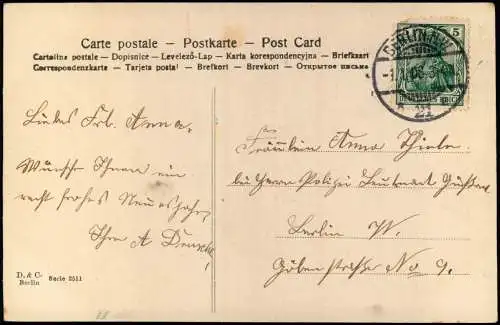 Carte postale – Postkarte – Post Card
Cartolina postale – Dopisnice – Levelező-Lap – Karta korespondencyjna – Brievkaart
Correspondenzkarte – Tarjeta postal – Brefkort – Brevkort – Открытое письмо
5
BERLIN
21
Liebes Frl. Anna.
Wünsche Ihnen ein
recht frohes Neues Jahr,
Ihre A
Fräulein Anna Thiele
bei Herrn Polizei Leutnant
Berlin W.
straße No 9.
D. & C.
Berlin
Serie 2511